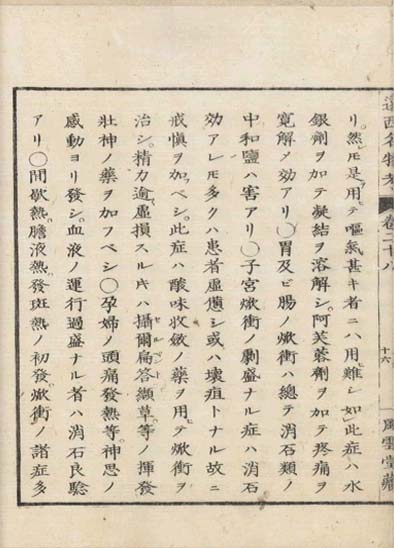 遠西名物考 巻二十八 十六 風雲堂藏
リ。然ルモ是ヲ用テ嘔氣甚キ者ニハ用難シ如此症ハ水
銀劑ヲ加テ凝結ヲ溶解シ。阿芙蓉劑ヲ加テ疼痛ヲ
寛解メ効アリ〇胃及ビ腸ノ焮衝ハ總テ消石類ノ
中和鹽ハ害アリ〇子宮焮衝ノ剧盛ナル症ハ消石
効アレモ多クハ患者虚憊シ或ハ壊疽トナル故ニ
戒慎ヲ加フベシ。此症ハ酸味收斂ノ藥ヲ用テ焮衝ヲ
治シ。精力逾虚損スルキハ攝爾扁答纈草等ノ揮發
壯神ノ藥ヲ加フベシ〇孕婦ノ頭痛發熱等。神思ノ
感動ヨリ發シ。血液ノ運行過盛ナル者ハ消石良驗
アリ〇間歇熱。膽液熱。發斑熱ノ初發。焮衝ノ諸症多